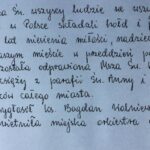 Św. wszyscy ludzie ze wszy
w Polsce składali hołd i p
lat niesienia miłości, nadziei
naszym mieście w przeddzień p
została odprawiona Msza Św.
księży z parafii Św. Anny i
ców całego miasta.
wygłosił ks. Bogdan
świetniła miejska orkiestra